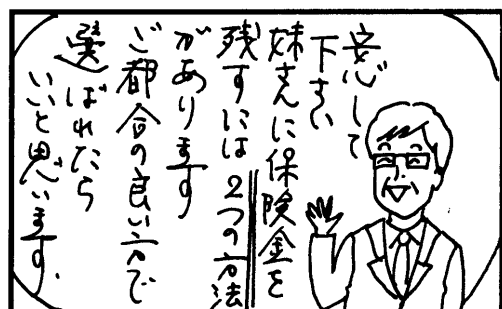 安心して
下さい
妹さんに保険金を
残すには2つの方法
があります
ご都合の良い方で
選ばれたら
いいと思います。